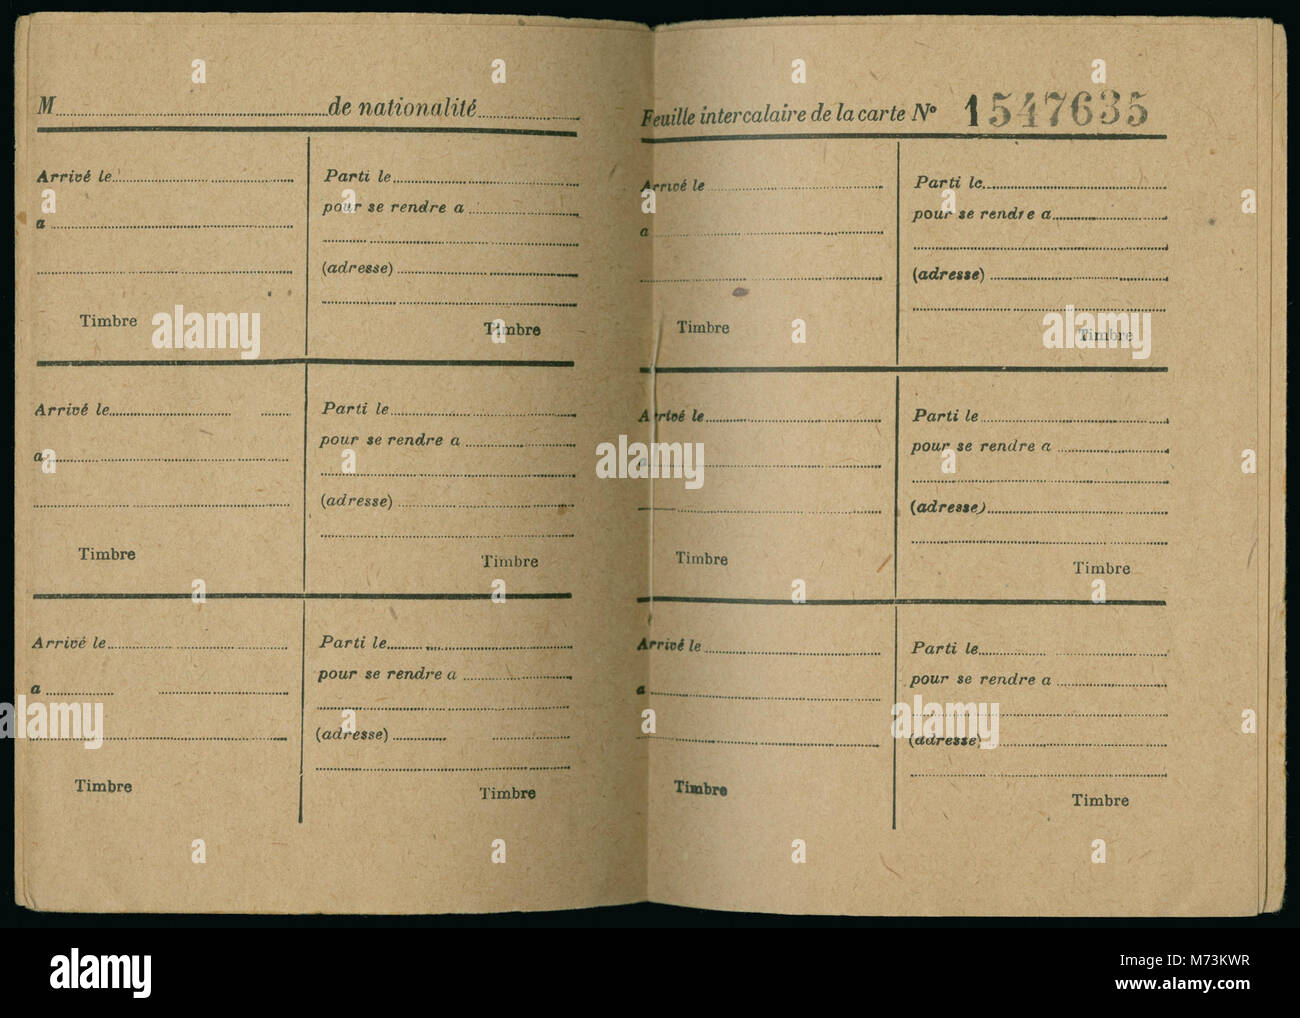 M de nationalité
Arrivé le
a
Timbre
Parti le
pour se rendre a
(adresse)
Timbre
Arrivé le
a
Timbre
Parti le
pour se rendre a
(adresse)
Timbre
Arrivé le
a
Timbre
Parti le
pour se rendre a
(adresse)
Timbre
Feuille intercalaire de la carte Nº 1547635
Arrivé le
a
Timbre
Parti le
pour se rendre a
(adresse)
Timbre
Arrivé le
a
Timbre
Parti le
pour se rendre a
(adresse)
Timbre
Arrivé le
a
Timbre
Parti le
pour se rendre a
(adresse)
Timbre
alamy
alamy
alamy
alamy
alamy
alamy
Image ID: M73KWR
www.alamy.com